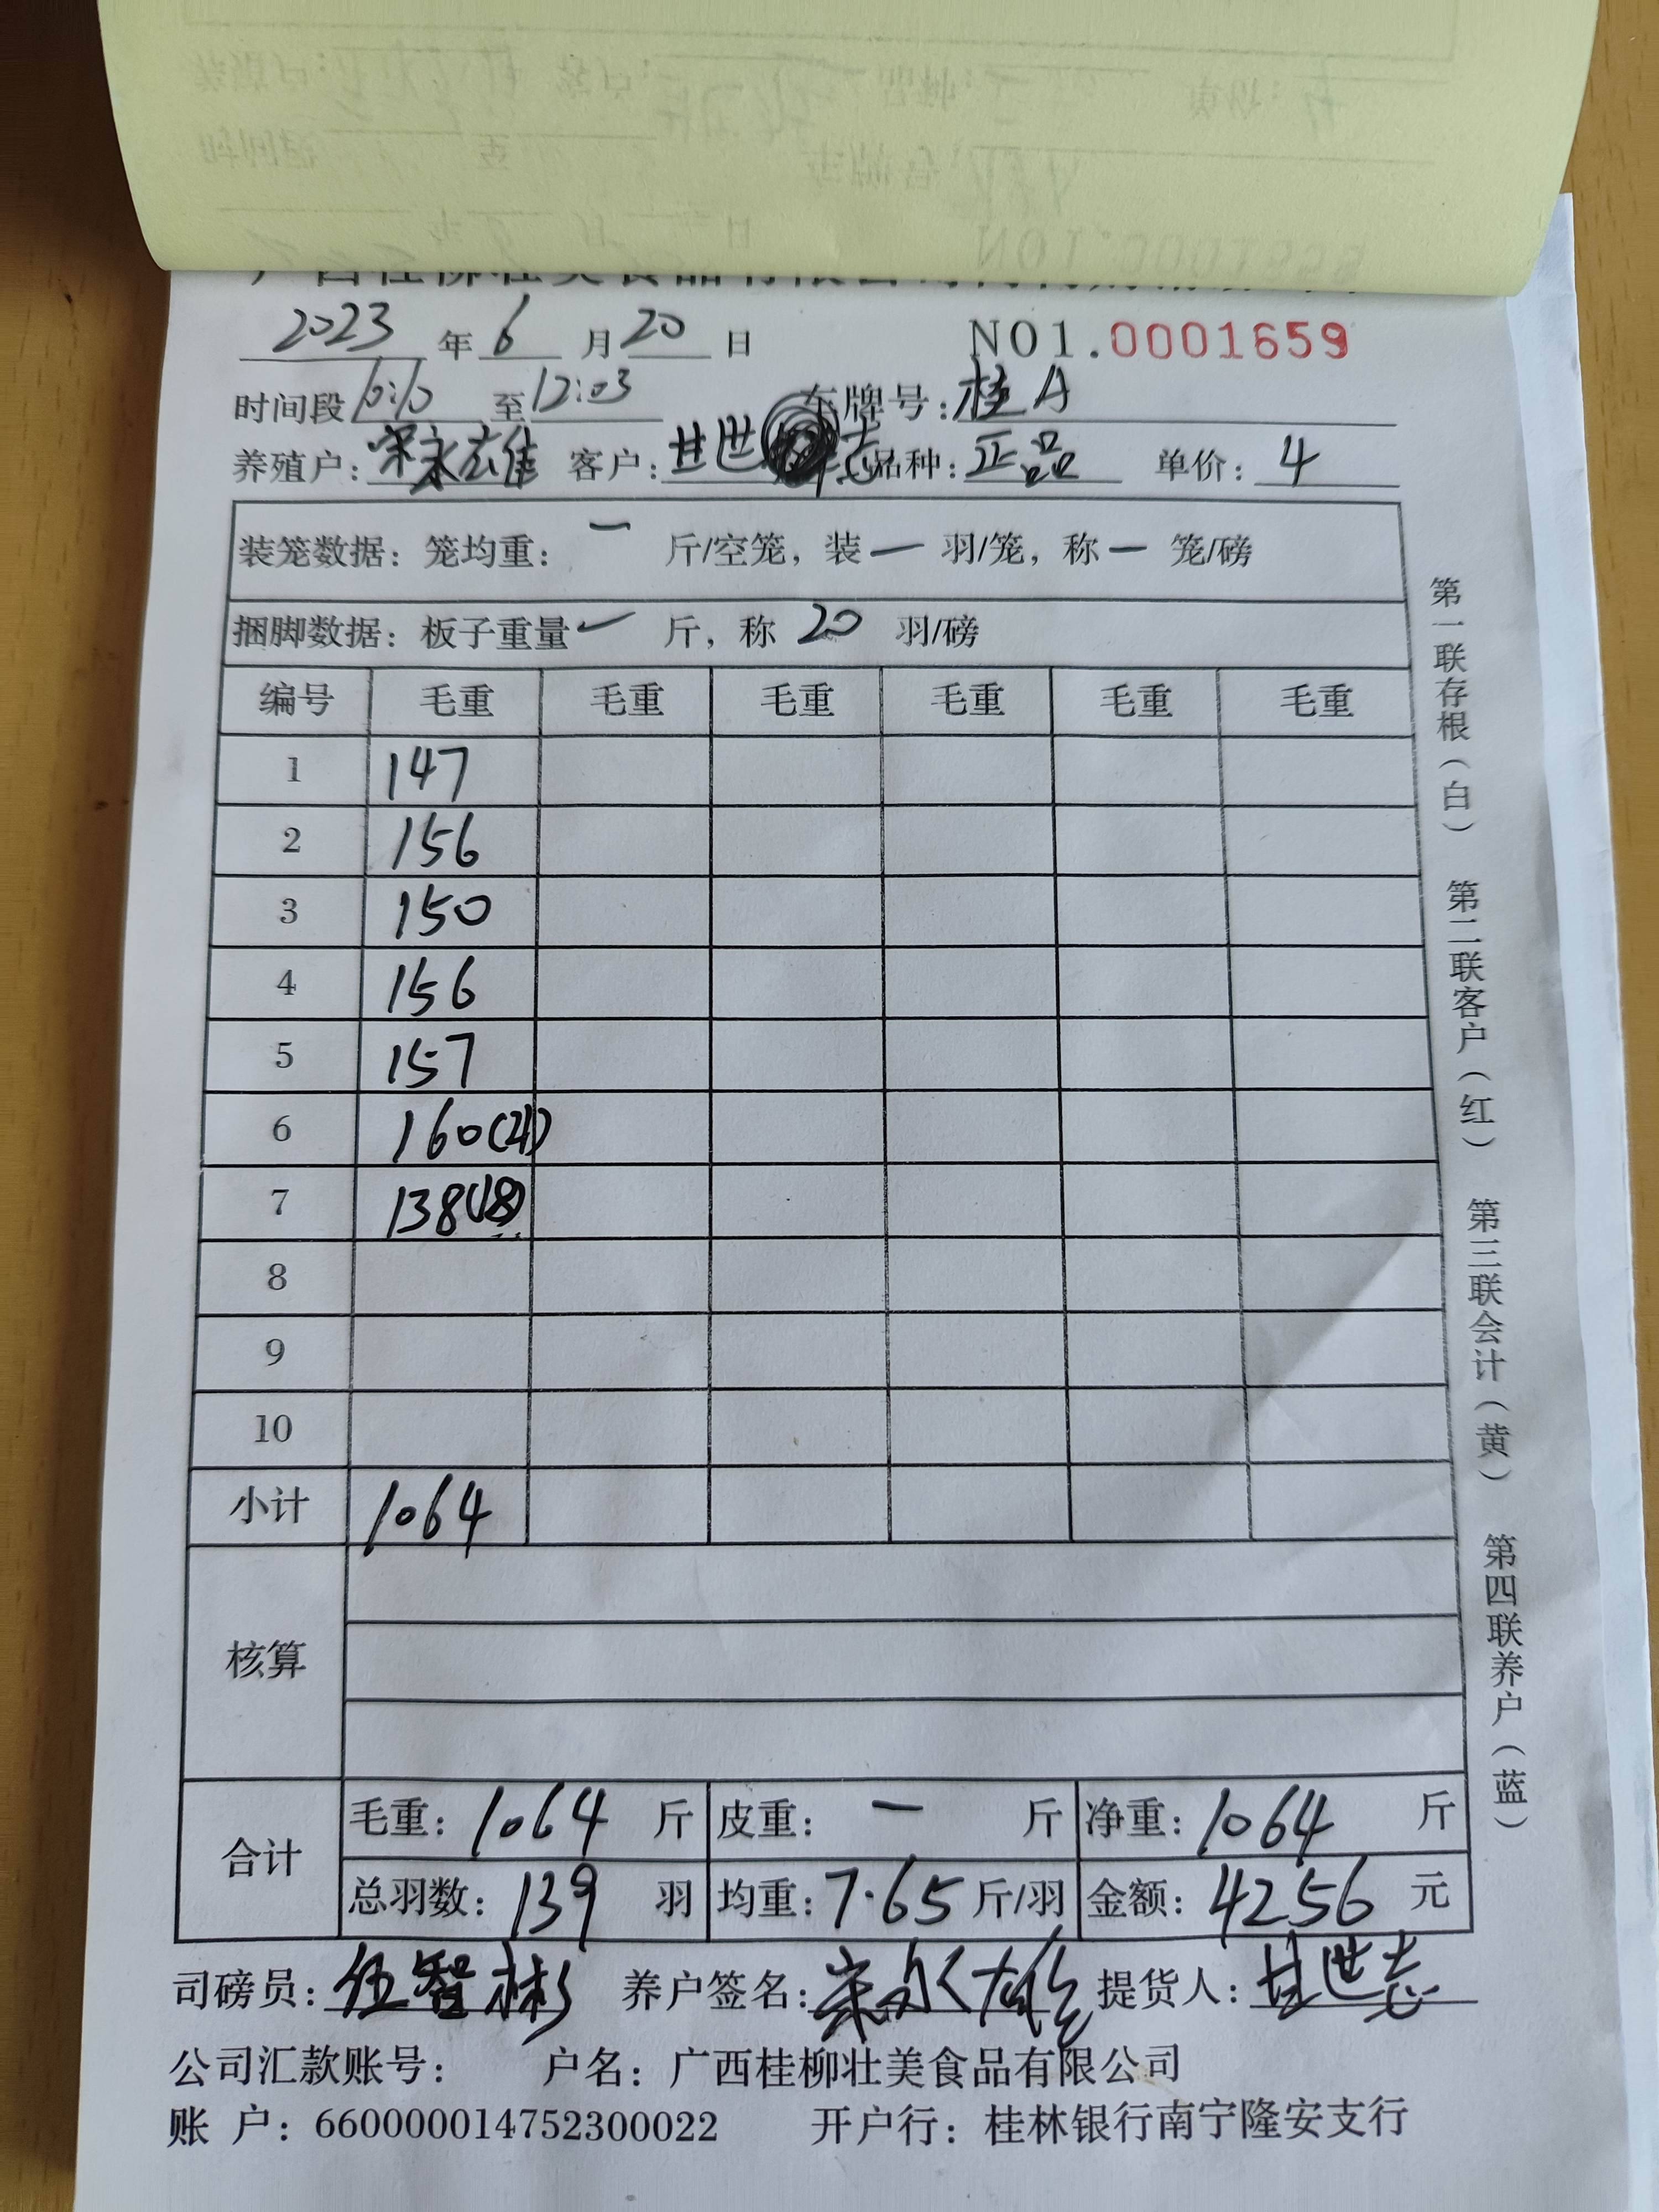 2023 年 6 月 20 日 NO1.0001659
时间段 至 12:03 车牌号: 桂A
养殖户: 宋永雄 客户: 甘世志 品种: 正品 单价: 4
装笼数据: 笼均重: 一 斤/空笼, 装 一 羽/笼, 称 一 笼/磅
捆脚数据: 板子重量 一 斤, 称 20 羽/磅
编号 毛重 毛重 毛重 毛重 毛重 毛重
1 147
2 156
3 150
4 156
5 157
6 160(21)
7 138(18)
8
9
10
小计 1064
核算
合计 毛重: 1064 斤 皮重: 一 斤 净重: 1064 斤
总羽数: 139 羽 均重: 7.65 斤/羽 金额: 4256 元
司磅员: 伍智彬 养户签名: 宋永雄 提货人: 甘世志
公司汇款账号: 户名: 广西桂柳壮美食品有限公司
账 户: 660000014752300022 开户行: 桂林银行南宁隆安支行
第一联存根(白) 第二联客户(红) 第三联会计(黄) 第四联养户(蓝)